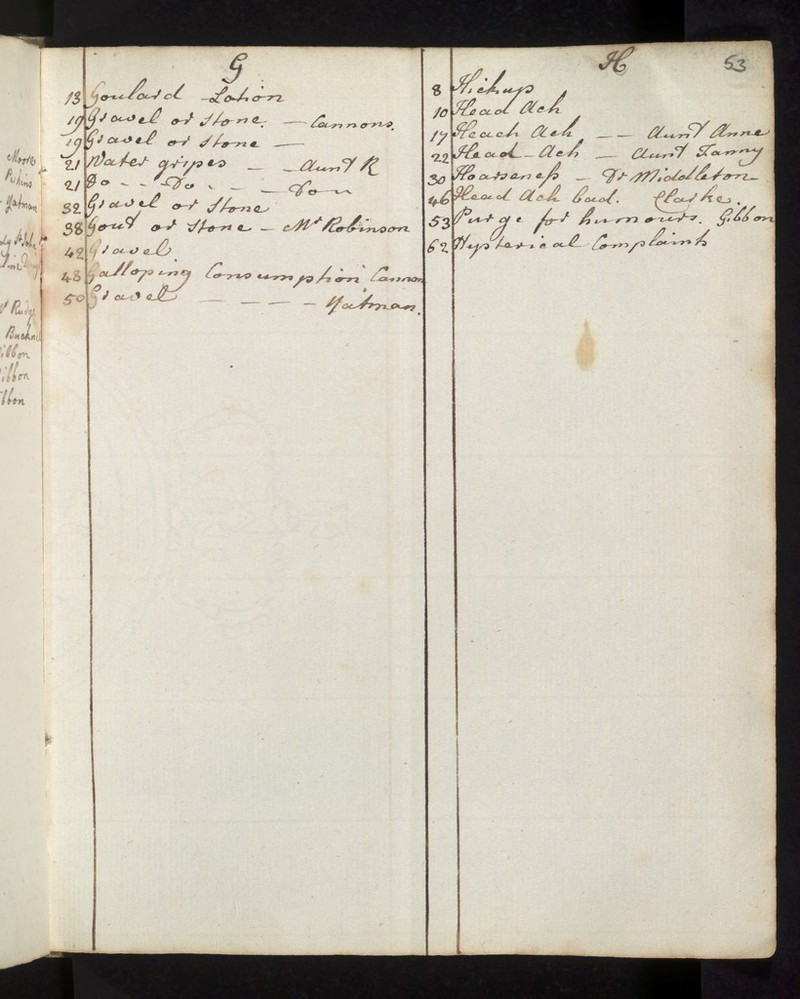 G
13 Goulard Lotion
19 Gravel or Stone. — Cannons.
19 Gravel or Stone —
21 Water gripes — — Aunt R
21 Do - - Do - - — Do
32 Gravel or Stone
38 Gout or Stone — Mr Robinson
42 Gravel
48 Galloping Consumption Cannon
50 Gravel — — — — Yatman.
H 53
8 Hickup
10 Head Ach
17 Heach Ach — — Aunt Anne
22 Head-Ach — Aunt Fanny
30 Hoarseness — Dr Middleton
46 Head Ach bad. Clarke.
53 Purge for humours. Gibbon
62 Hysterical Complaints
Moore
Yatman
Gibbon